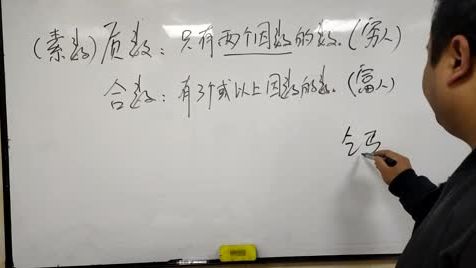 (素数)质数：只有两个因数的数.(穷人)
合数：有3个或以上因数的数.(富人)
乞丐